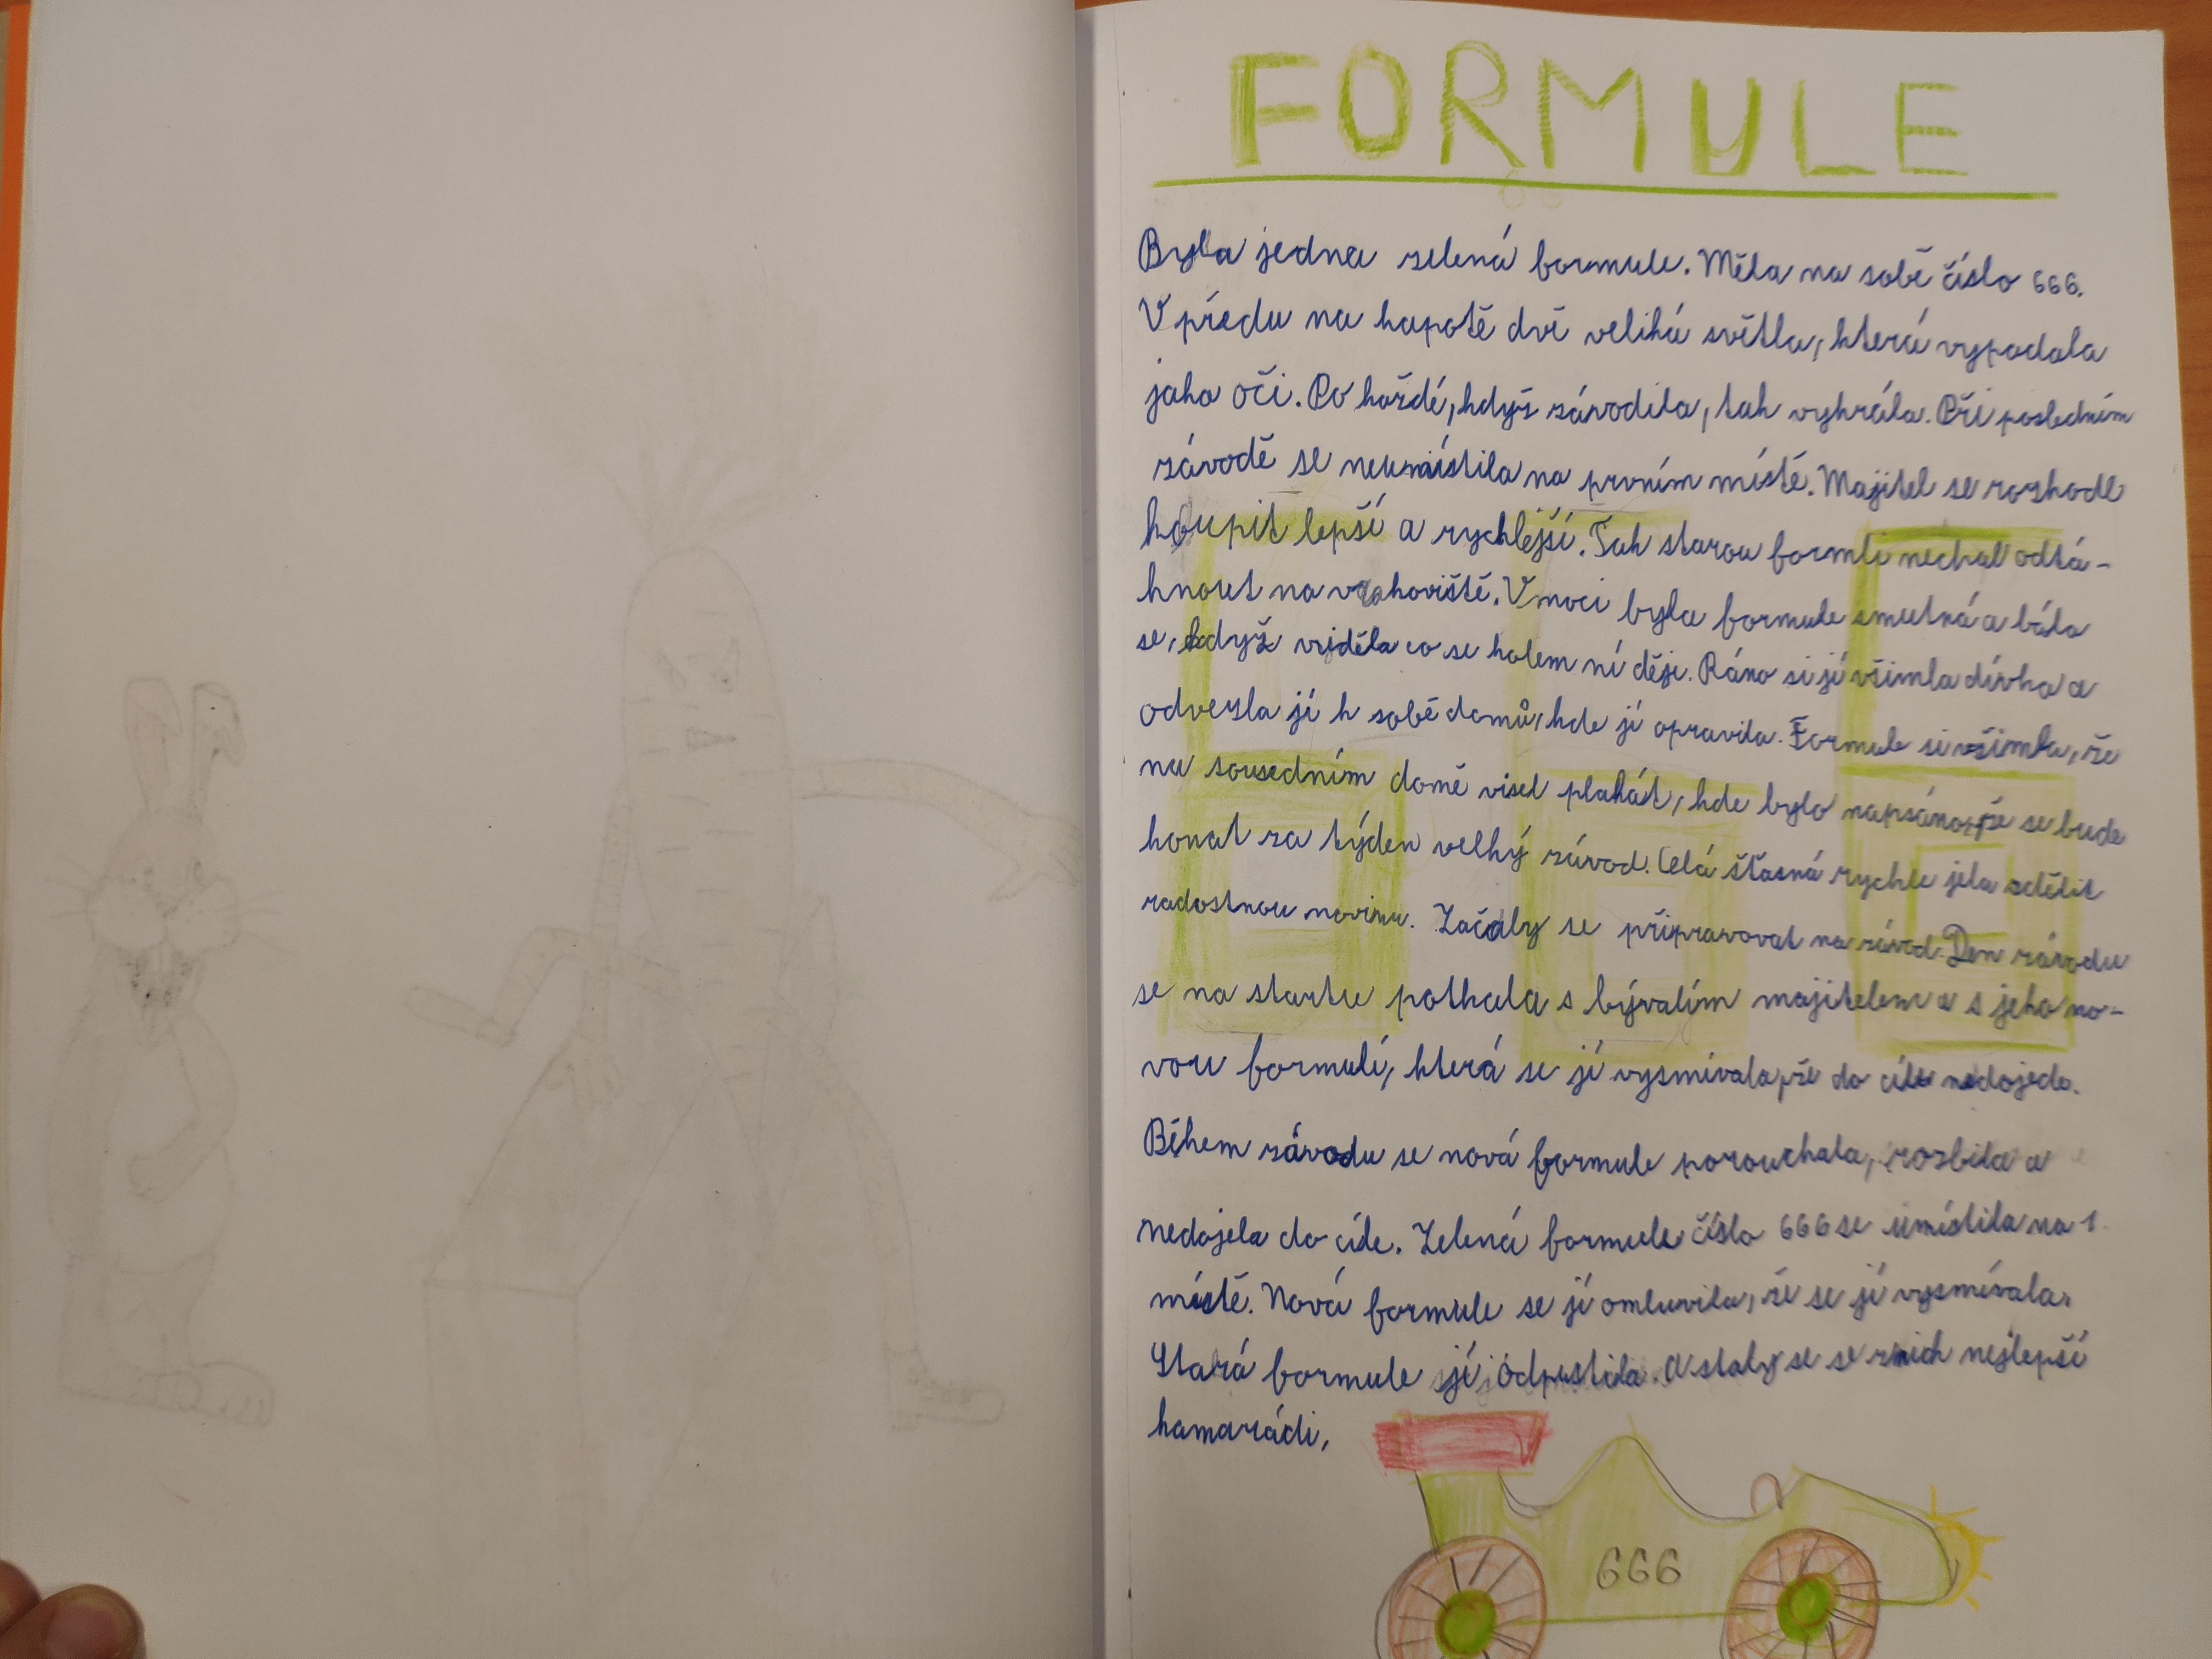 FORMULE
Byla jedna zelená formule. Měla na sobě číslo 666.
V předu na kapotě dvě veliká světla, která vypadala
jako oči. Po každé, když závodila, tak vyhrála. Při posledním
závodě se neumístila na prvním místě. Majitel se rozhodl
koupit lepší a rychlejší. Tak starou formli nechal odtá-
hnout na vrakoviště. V noci byla formule smutná a bála
se, když viděla co se kolem ní děje. Ráno si jí všimla dívka a
odvezla jí k sobě domů, kde jí opravila. Formule si všimla, že
na sousedním domě visel plakát, kde bylo napsáno, že se bude
konat za týden velký závod. Celá šťasná rychle jela sdělit
radostnou novinu. Začaly se připravovat na závod. Den závodu
se na startu potkala s bývalím majitelem a s jeho no-
vou formulí, která se jí vysmívala, že do cíle nedojede.
Během závodu se nová formule porouchala, rozbila a
nedojela do cíle. Zelená formule číslo 666 se umístila na 1.
místě. Nová formule se jí omluvila, že se jí vysmívala.
Stará formule jí odpustila. A staly se se z nich nejlepší
kamarádi,
666